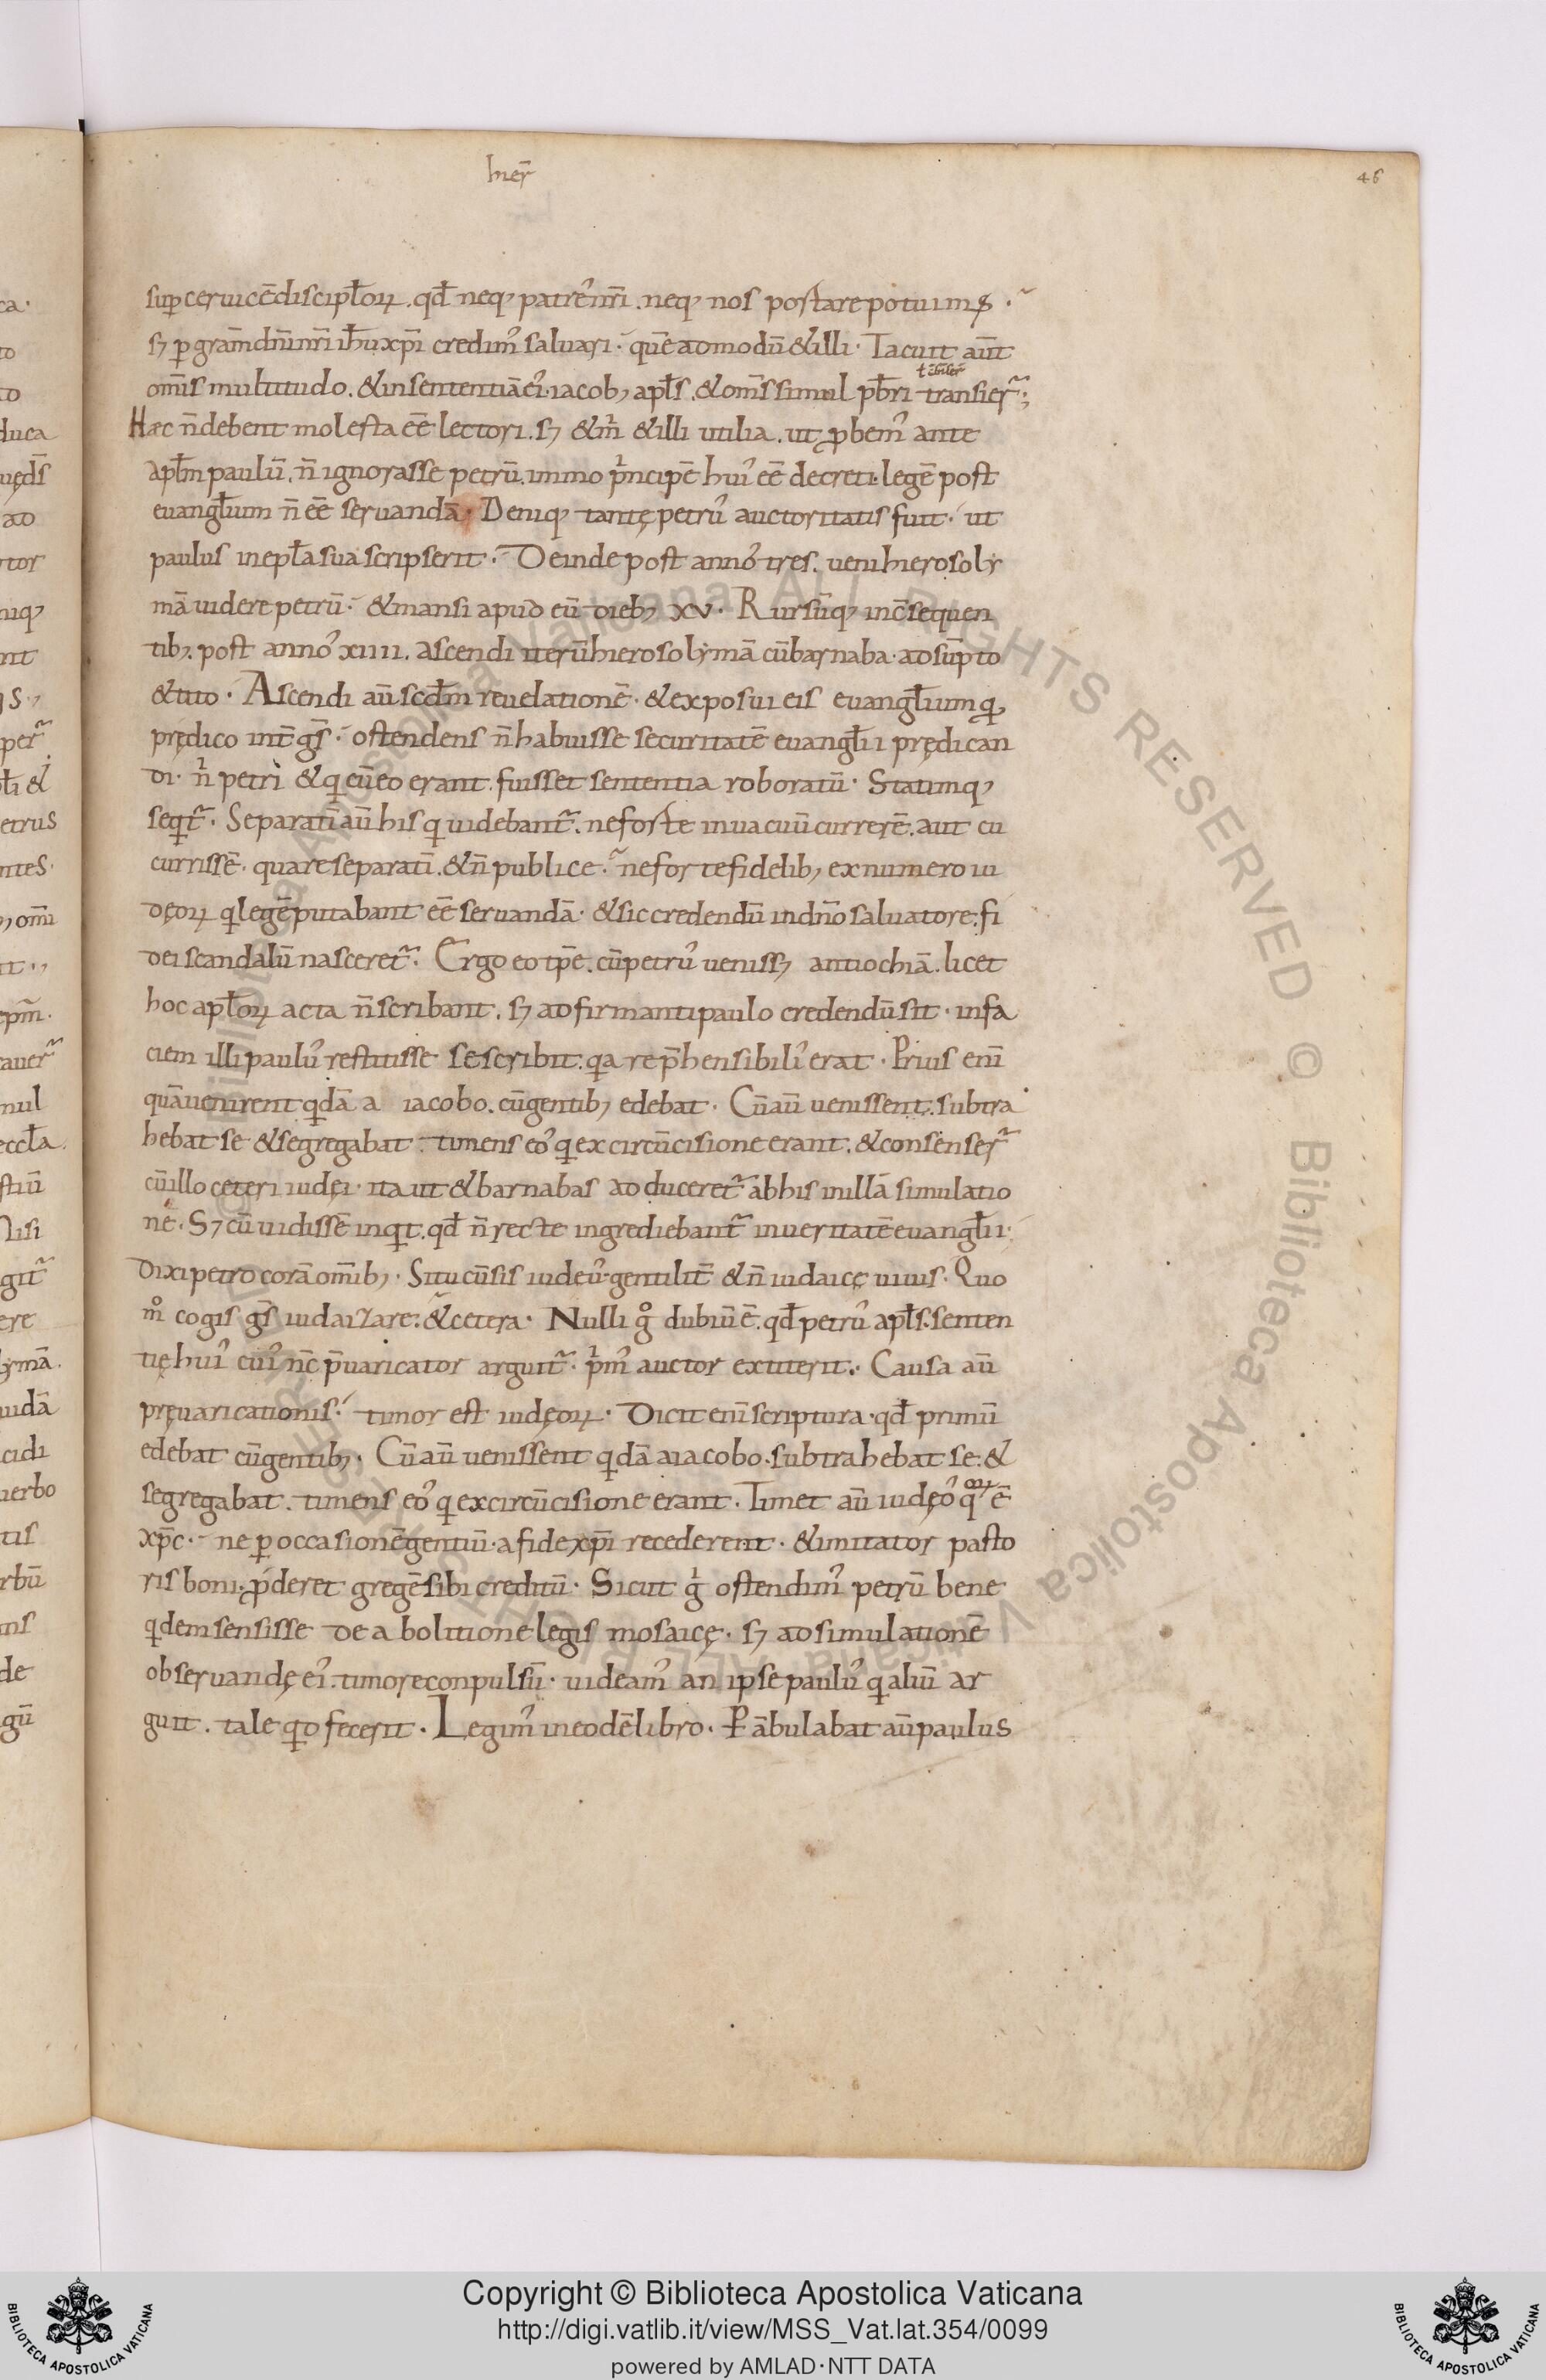 hieꝝ̄
46
suꝑ ceruicē discipl̄oꝝ. qđ neq; patres nr̄i. neq; nos portare potuimus.
sꝫ ꝑ grām dn̄i nr̄i ih̄u xp̄i credim᾿ saluari. quē admodū & illi. Tacuit aūt
om̄is multitudo. & in sententiā ei᾿ iacobꝫ apl̄s. & om̄s simul pb̄ri transieꝝ̄;
Hæc n̄ debent molesta eē lectori. sꝫ & m̄ & illi utilia. ut ꝓbem᾿ ante
apl̄m paulū. n̄ ignorasse petrū. immo p̄ncipē hui᾿ eē decreti. legē post
euangl̄ium n̄ eē seruandā. Deniq; tantę petr᾿ auctoritatis fuit. ut
paulus in epl̄a sua scripserit. Deinde post anno᾿ tres. ueni hierosoly
mā uidere petrū. & mansi apud eū diebꝫ xv. Rursūq; inc̄sequen
tibꝫ. post anno᾿ xiiii. ascendi iterū hierosolymā cū barnaba. adsūpto
& tito. Ascendi aū scđm reuelationē. & exposui eis euangl̄ium qͦ
prędico int̄ gs̄. ostendens n̄ habuisse securitatē euangl̄ii prędican
di. n̄ petri & qi cū eo erant. fuisset sententia roboratū. Statimq;
seqt̄. Separatī aū his qi uidebant̄. ne forte in uacuū currerē. aut cu
currissē. quare separatī. & n̄ publice. ne forte fidelibꝫ ex numero iu
dęoꝝ qi legē putabant eē seruandā. & sic credendū in dn̄o saluatore. fi
dei scandalū nasceret̄. Ergo eo tp̄e. cū petr᾿ uenissꝫ antiochiā. licet
hoc apl̄oꝝ acta n̄ scribant. sꝫ adfirmanti paulo credendū sit. in fa
ciem illi paul᾿ restitisse se scribit. qa rep̄hensibili᾿ erat. Prius enī
quā uenirent qidā a iacobo. cū gentibꝫ edebat. Cū aū uenissent. subtra
hebat se & segregabat. timens eo᾿ qi ex circūcisione erant. & consenseꝝ̄
cū illo ceteri iudęi. ita ut & barnabas adduceret̄ ab his in illā simulatio
nē. Sꝫ cū uidissē inqit. qđ n̄ recte ingrediebant̄ in ueritatē euangl̄ii.
Dixi petro corā om̄ibꝫ. Si tu cū sis iudęu᾿ gentilit̄ & n̄ iudaicę uiuis. Quo
mͦ cogis gs̄ iudaizare. & cetera. Nulli gͦ dubiū ē. qđ petr᾿ apl̄s. senten
tię hui᾿ cui᾿ nc̄ p̄uaricator arguit̄. p̄m᾿ auctor extiterit. Causa aū
pręuaricationis. timor est iudęoꝝ. Dicit enī scriptura. qđ primū
edebat cū gentibꝫ. Cū aū uenissent qidā a iacobo. subtrahebat se. &
segregabat. timens eo᾿ qi ex circūcisione erant. Timet aū iudęo᾿ qoꝝ ē
xp̄c. ne ꝑ occasionē gentiū. a fide xp̄i recederent. & imitator pasto
ris boni. ꝑderet gregē sibi creditū. Sicut g̊ ostendim᾿ petrū bene
qidem sensisse de abolitione legis mosaicę. sꝫ ad simulationē
obseruandę ei᾿. timore conpulsū. uideam᾿ an ipse paul᾿ qi aliū ar
guit. tale qid fecerit. Legim᾿ in eodē libro. Pābulabat aū paulus
Copyright © Biblioteca Apostolica Vaticana
http://digi.vatlib.it/view/MSS_Vat.lat.354/0099
powered by AMLAD·NTT DATA
BIBLIOTECA APOSTOLICA VATICANA
BIBLIOTECA APOSTOLICA VATICANA